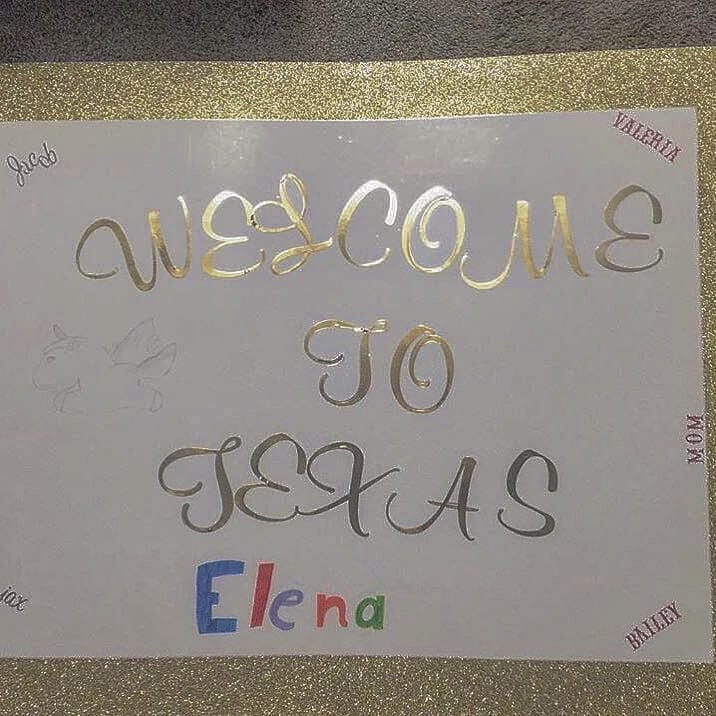 Jacob
VALERIA
WELCOME
TO
TEXAS
MOM
Elena
jax
BAILEY